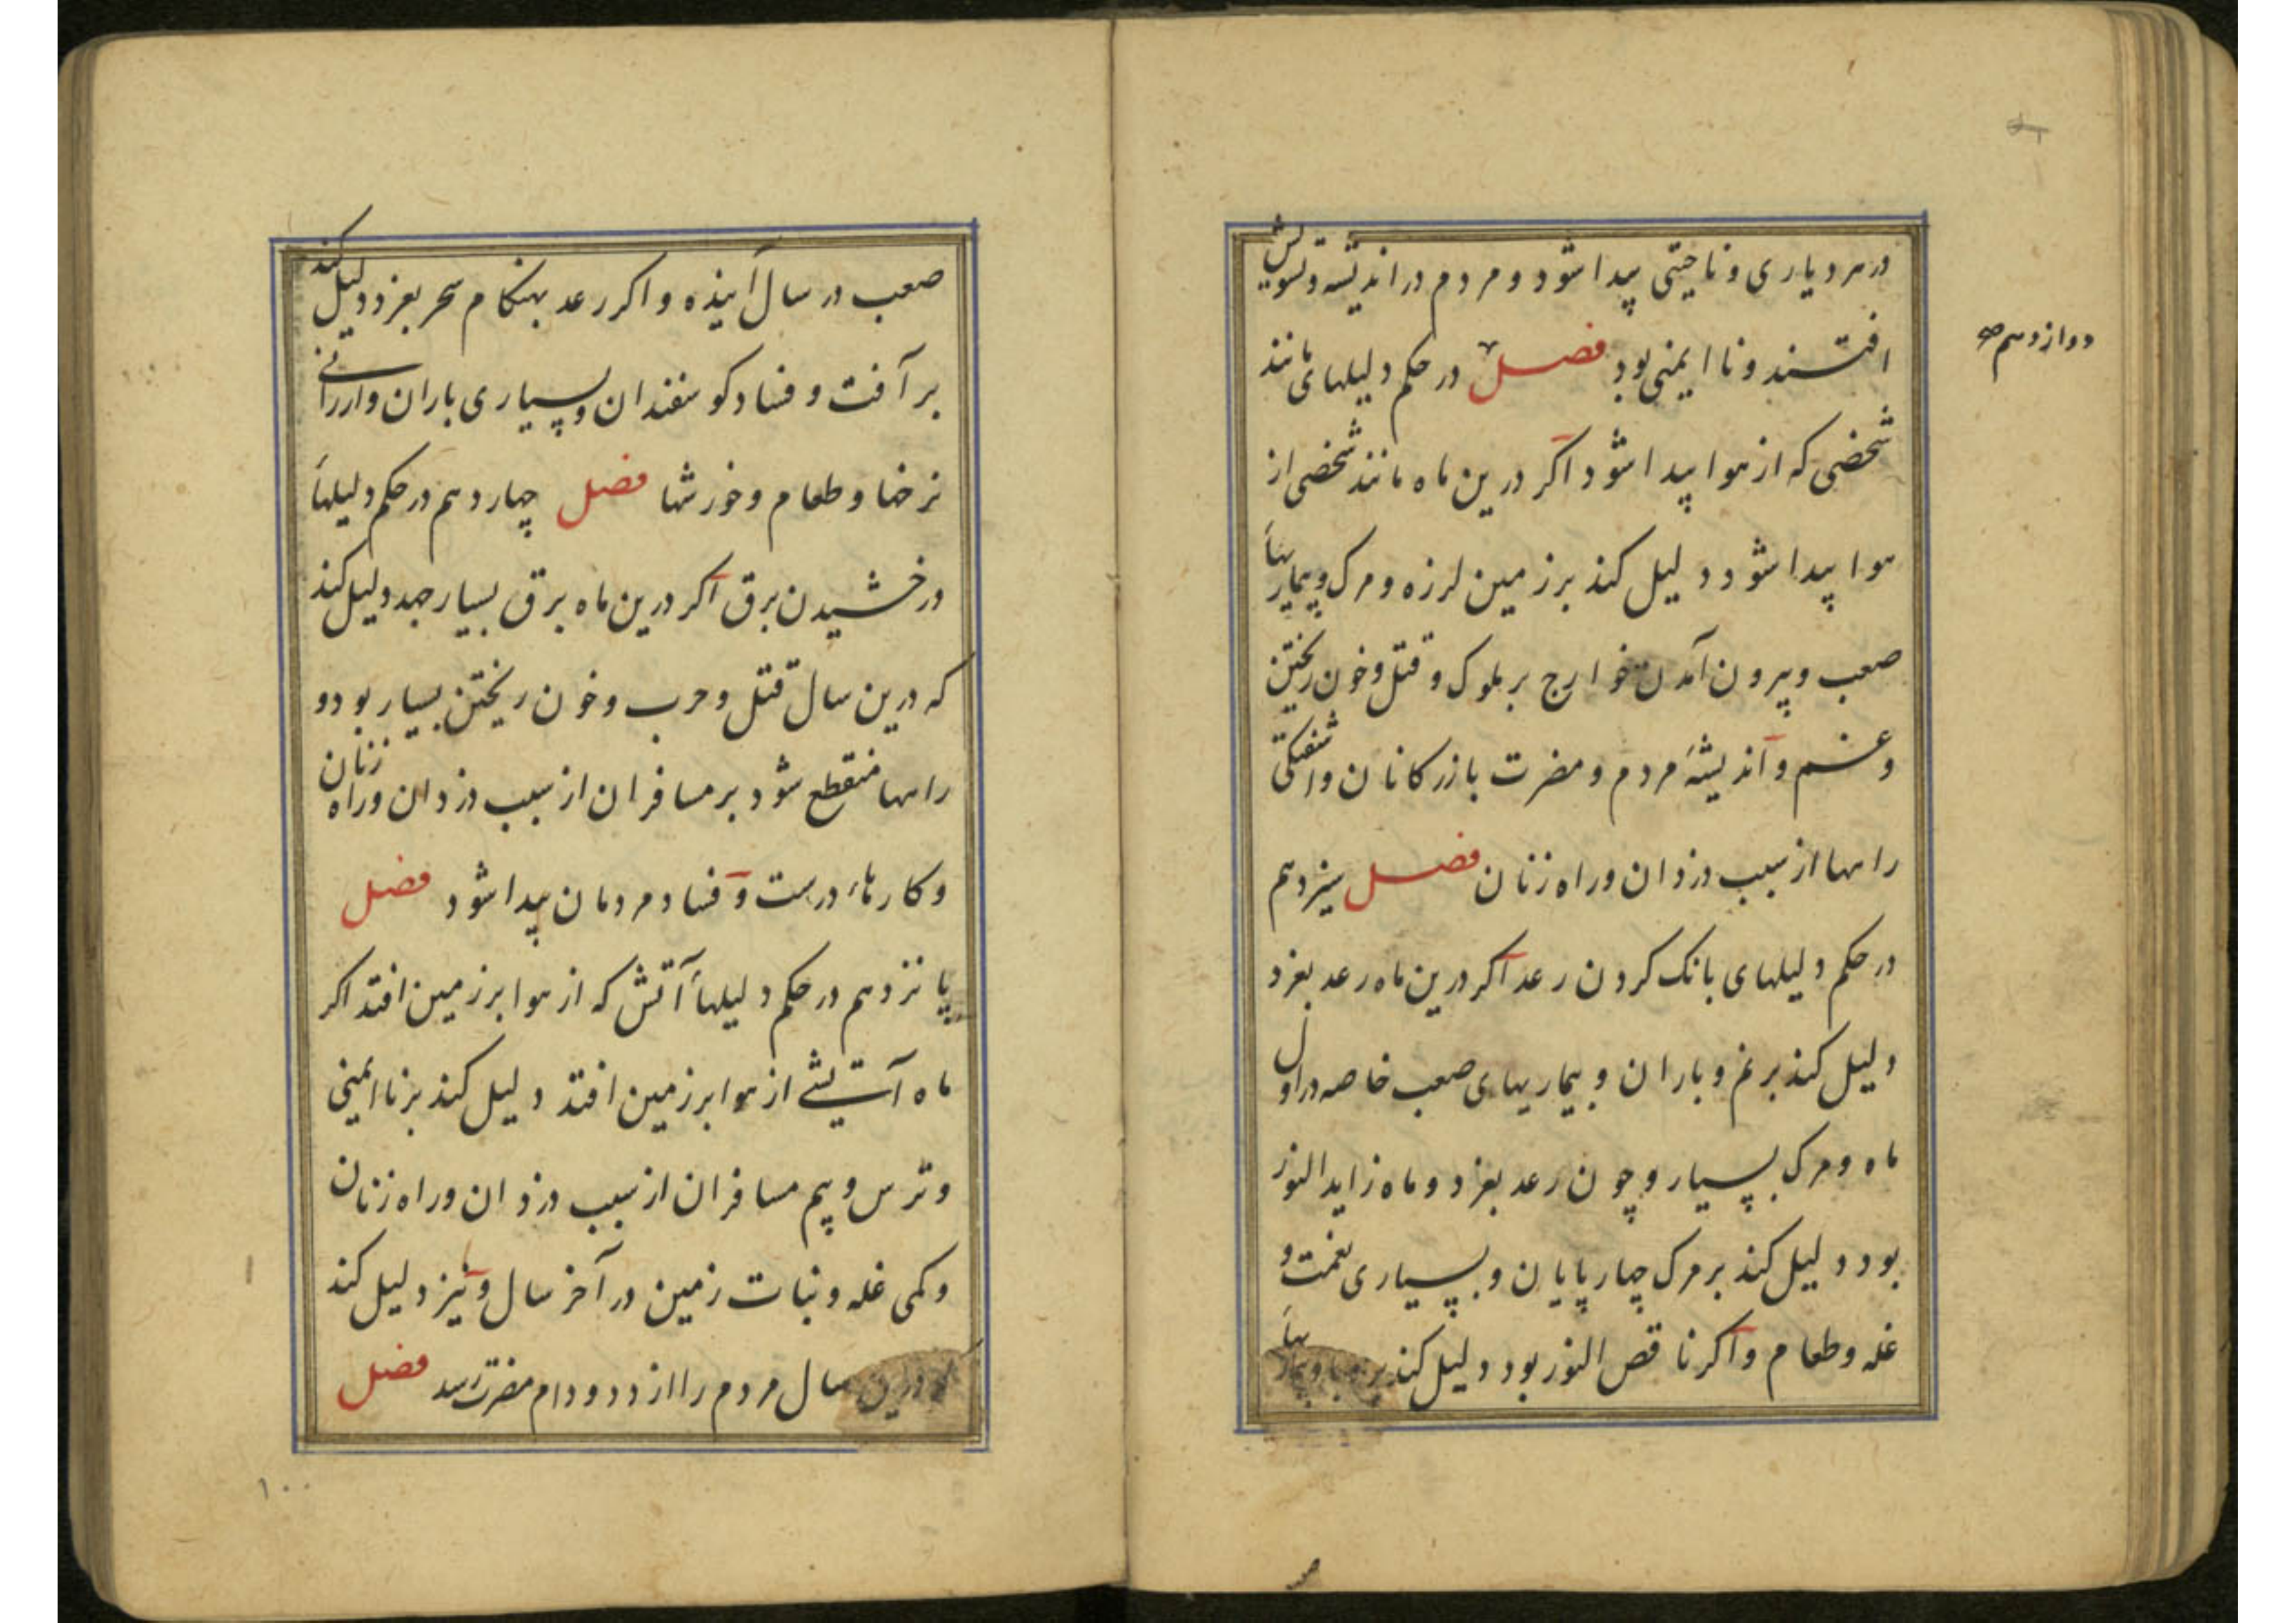 در هر دیاری و ناحیتی پیدا شود و مردم در اندیشه و تشویش
افتند و نا ایمنی بود فصل در حکم دلیلهای مانند
دوازدهم صح
شخصی که از هوا پیدا شود اکر درین ماه مانند شخصی از
هوا پیدا شود دلیل کند بر زمین لرزه و مرک و بیماریهاء
صعب و بیرون آمدن خوارج بر ملوک و قتل و خون ریختن
و غم و اندیشهٔ مردم و مضرت بازرکانان و اشفتکی
راهها از سبب دزدان و راه زنان فصل سیزدهم
در حکم دلیلهای بانک کردن رعد اکر درین ماه رعد بغرد
دلیل کند بر نم و باران و بیماریهای صعب خاصه در اول
ماه و مرک بسیار و چون رعد بغرد و ماه زاید النور
بود دلیل کند بر مرک چهارپایان و بسیاری نعمت و
غله و طعام و اکر ناقص النور بود دلیل کند بر وبا و بیماریهاء
صعب در سال آینده و اکر رعد بهنکام سحر بغرد دلیل کند
بر آفت و فساد کوسفندان و بسیاری باران و ارزانی
نرخها و طعام و خورشها فصل چهاردهم در حکم دلیلهاء
درخشیدن برق اکر درین ماه برق بسیار جهد دلیل کند
که درین سال قتل و حرب و خون ریختن بسیار بود و
راهها منقطع شود بر مسافران از سبب دزدان و راه زنان
و کارهاء درست و فساد مردمان پیدا شود فصل
پانزدهم در حکم دلیلهاء آتش که از هوا بر زمین افتد اکر
ماه آتشی از هوا بر زمین افتد دلیل کند بر نا ایمنی
و ترس و بیم مسافران از سبب دزدان و راه زنان
و کمی غله و نبات زمین در آخر سال و نیز دلیل کند
که درین سال مردم را از دد و دام مضرت رسد فصل
۱۰۰